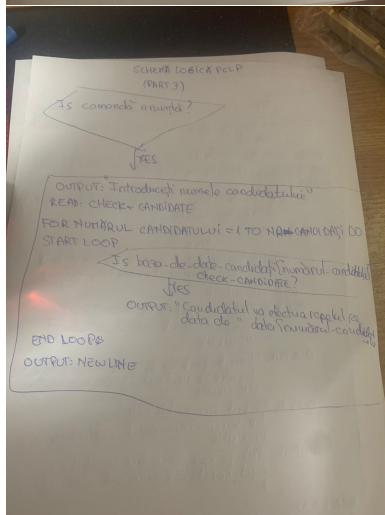 SCHEMĂ LOGICĂ PCLP
(PART 3)
Is comandă anunță?
YES
OUTPUT: "Introduceți numele candidatului"
READ: CHECK-CANDIDATE
FOR NUMĂRUL CANDIDATULUI = 1 TO CANDIDAȚI DO
START LOOP
Is baza-de-date-candidați[numărul-candidatului]
check-CANDIDATE?
YES
OUTPUT: "Candidatul va efectua pe
data de " data[numărul-candidatului]
END LOOP
OUTPUT: NEWLINE